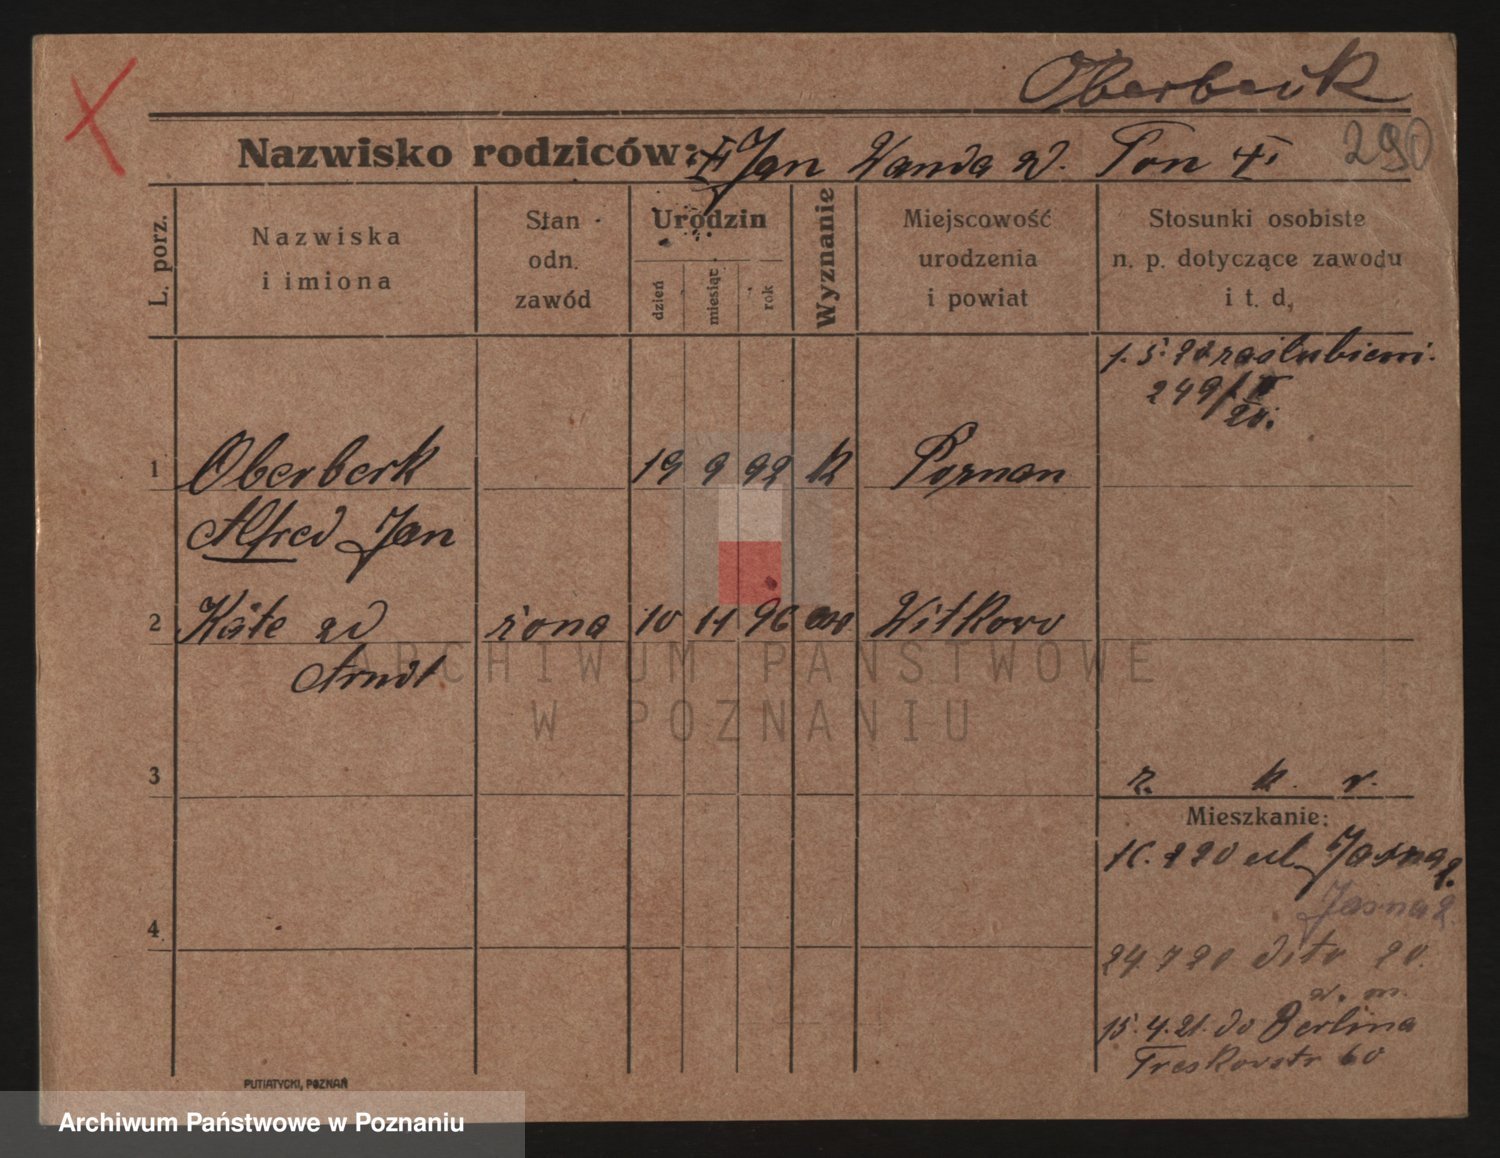 Oberbeck
Nazwisko rodziców: Jan Wanda z. Ton
290
L. porz.
Nazwiska
i imiona
Stan
odn.
zawód
Urodzin
dzień
miesiąc
rok
Wyznanie
Miejscowość
urodzenia
i powiat
Stosunki osobiste
n. p. dotyczące zawodu
i t. d,
1. 5. 20 zaślubieni.
249/II
20.
1 Oberbeck 19 9 92 k Poznan
Alfred Jan
2 Käte zd żona 10 11 96 ew Witkowo
Arndt
3
r. k. r.
Mieszkanie:
ul. Jasna 9.
Jasna 9.
4
24 7 20 dito 20.
15. 4. 21. do Berlina
Treskowstr 60
PUTIATYCKI, POZNAŃ
ARCHIWUM PAŃSTWOWE
W POZNANIU
Archiwum Państwowe w Poznaniu